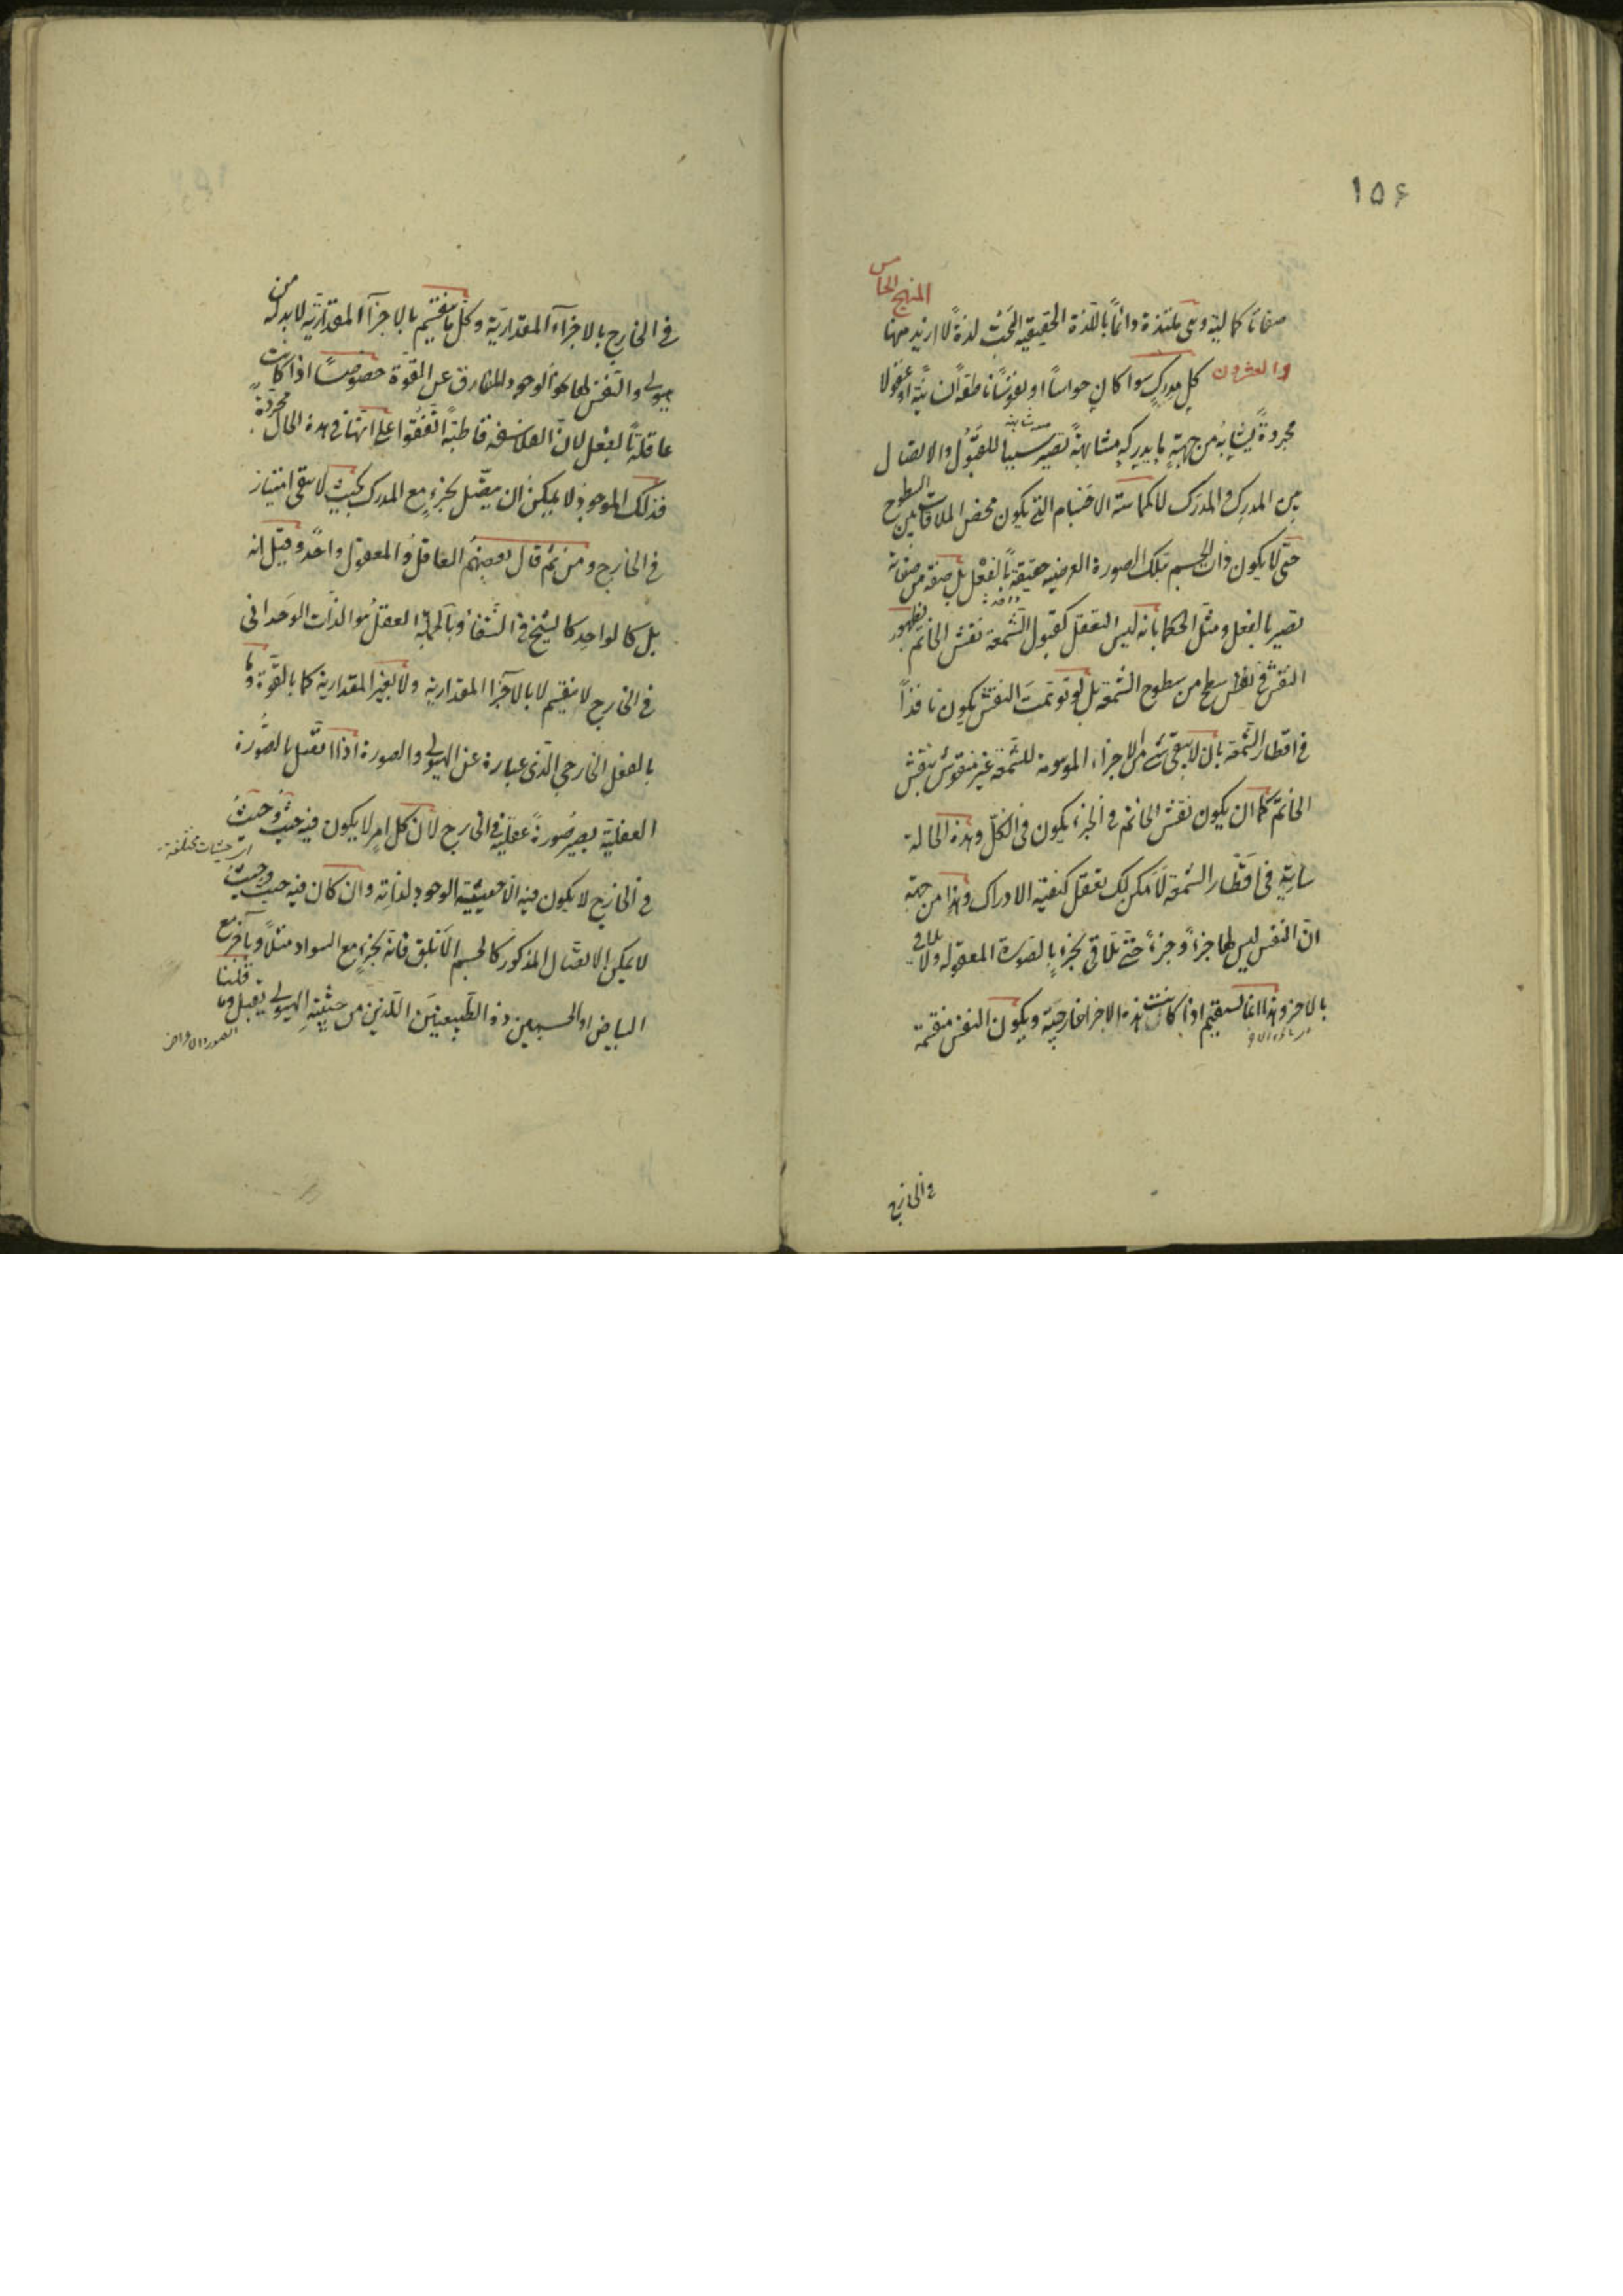 ١٥۶
صفاتا كمالية وهى ملتذة دائماً باللذة الحقيقية البحت لذةً لا ازيد منها المنهج الخامس
والعشرون كل مدرِكٍ سوا كان حواساً او نفوسًا ناطقةً انسانيّةً او عقولا
مجردةً يشابهُ من جهةٍ ما يدركه مشابهةً تصير سببا للقبُول والاتصال
بين المدرِك والمدرَك لا كمماسّة الاجسام التى يكون محض الملاقات بين السطوح
حتّى لا يكون ذات الجسم بتلك الصورة العرضيه حقيقةً بالفعل بل صفة من صفاته
تصير بالفعل ومثّل الحكما بانه ليس التعقل كقبول الشمعة نقش الخاتم بظهور
النقش فى نفس سطح من سطوح الشمعة بل لو توهّمت النقش يكون نافذاً
فى اقطار الشمعة بان لا يبقى شئ من الاجزاء الموهومة للشمعة غير منقوش بنقش
الخاتم كما ان يكون نقش الخاتم فى الجزء يكون فى الكلّ وهذه الحالة
سارية فى اقطار الشمعة لامكن لك تعقل كيفية الادراك وهذا من جهة
انّ النفس ليس لها جزءً وجزءً حتّى تلاقى بجزءٍ بالصورة المعقولة ولا تلاقى
بالاخر وهذا انما يستقيم اذا كانت هذه الاجزا خارجيّة ويكون النفس منقسمة
فى الخارج
فى الخارج بالاجزاء المقداريّة وكل ما ينقسم بالاجزاء المقداريّة لا بد له من
هيولى والنفس لها هو الوجود المفارق عن القوّة خصوصًا اذا كانت مجردةً
عاقلةً بالفعل لانّ الفلاسفه قاطبةً اتّفقوا على انّها فى هذه الحال
فذلك الموجودُ لا يمكن ان يتصّل بجزءٍ مع المدرك بحيث لا يبقى امتياز
فى الخارج ومن ثم قال بعضهُم العاقلُ والمعقول واحد وقيل انه
بل كالواحد كالشيخ فى الشفا وبالجملة العقلُ هو الذات الوَحدانى
فى الخارج لا ينقسم لا بالاجزا المقدارية ولا بغير المقدارية كما بالقوّة وما
بالفعل الخارجى الّذى عبارة عن الهيولى والصورة اذا اتّصل بالصُّورة
العقليّة يصير صُورةً عقليّة فى الخارج لانّ كلّ امرٍ لا يكون فيه حيثُ وحيثُ
اى حيثيات مختلفة
فى الخارج لا يكون فيه الا حيثيّة الوجود لذاته وان كان فيه حيث وحيث
لا يمكن الاتصّال المذكور كالجسم الابلق فانه بجزءٍ مع السواد مثلاً وبآخر مع
البياض او الجسمين ذو الطبيعتين اللذين من حيثيّة الهيولى تقبل وما قلنا
الصور والاعراض